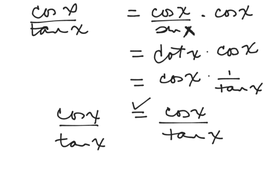 cosx/tanx = cosx/sinx · cosx
= cotx · cosx
= cosx · 1/tanx
cosx/tanx =✓ cosx/tanx